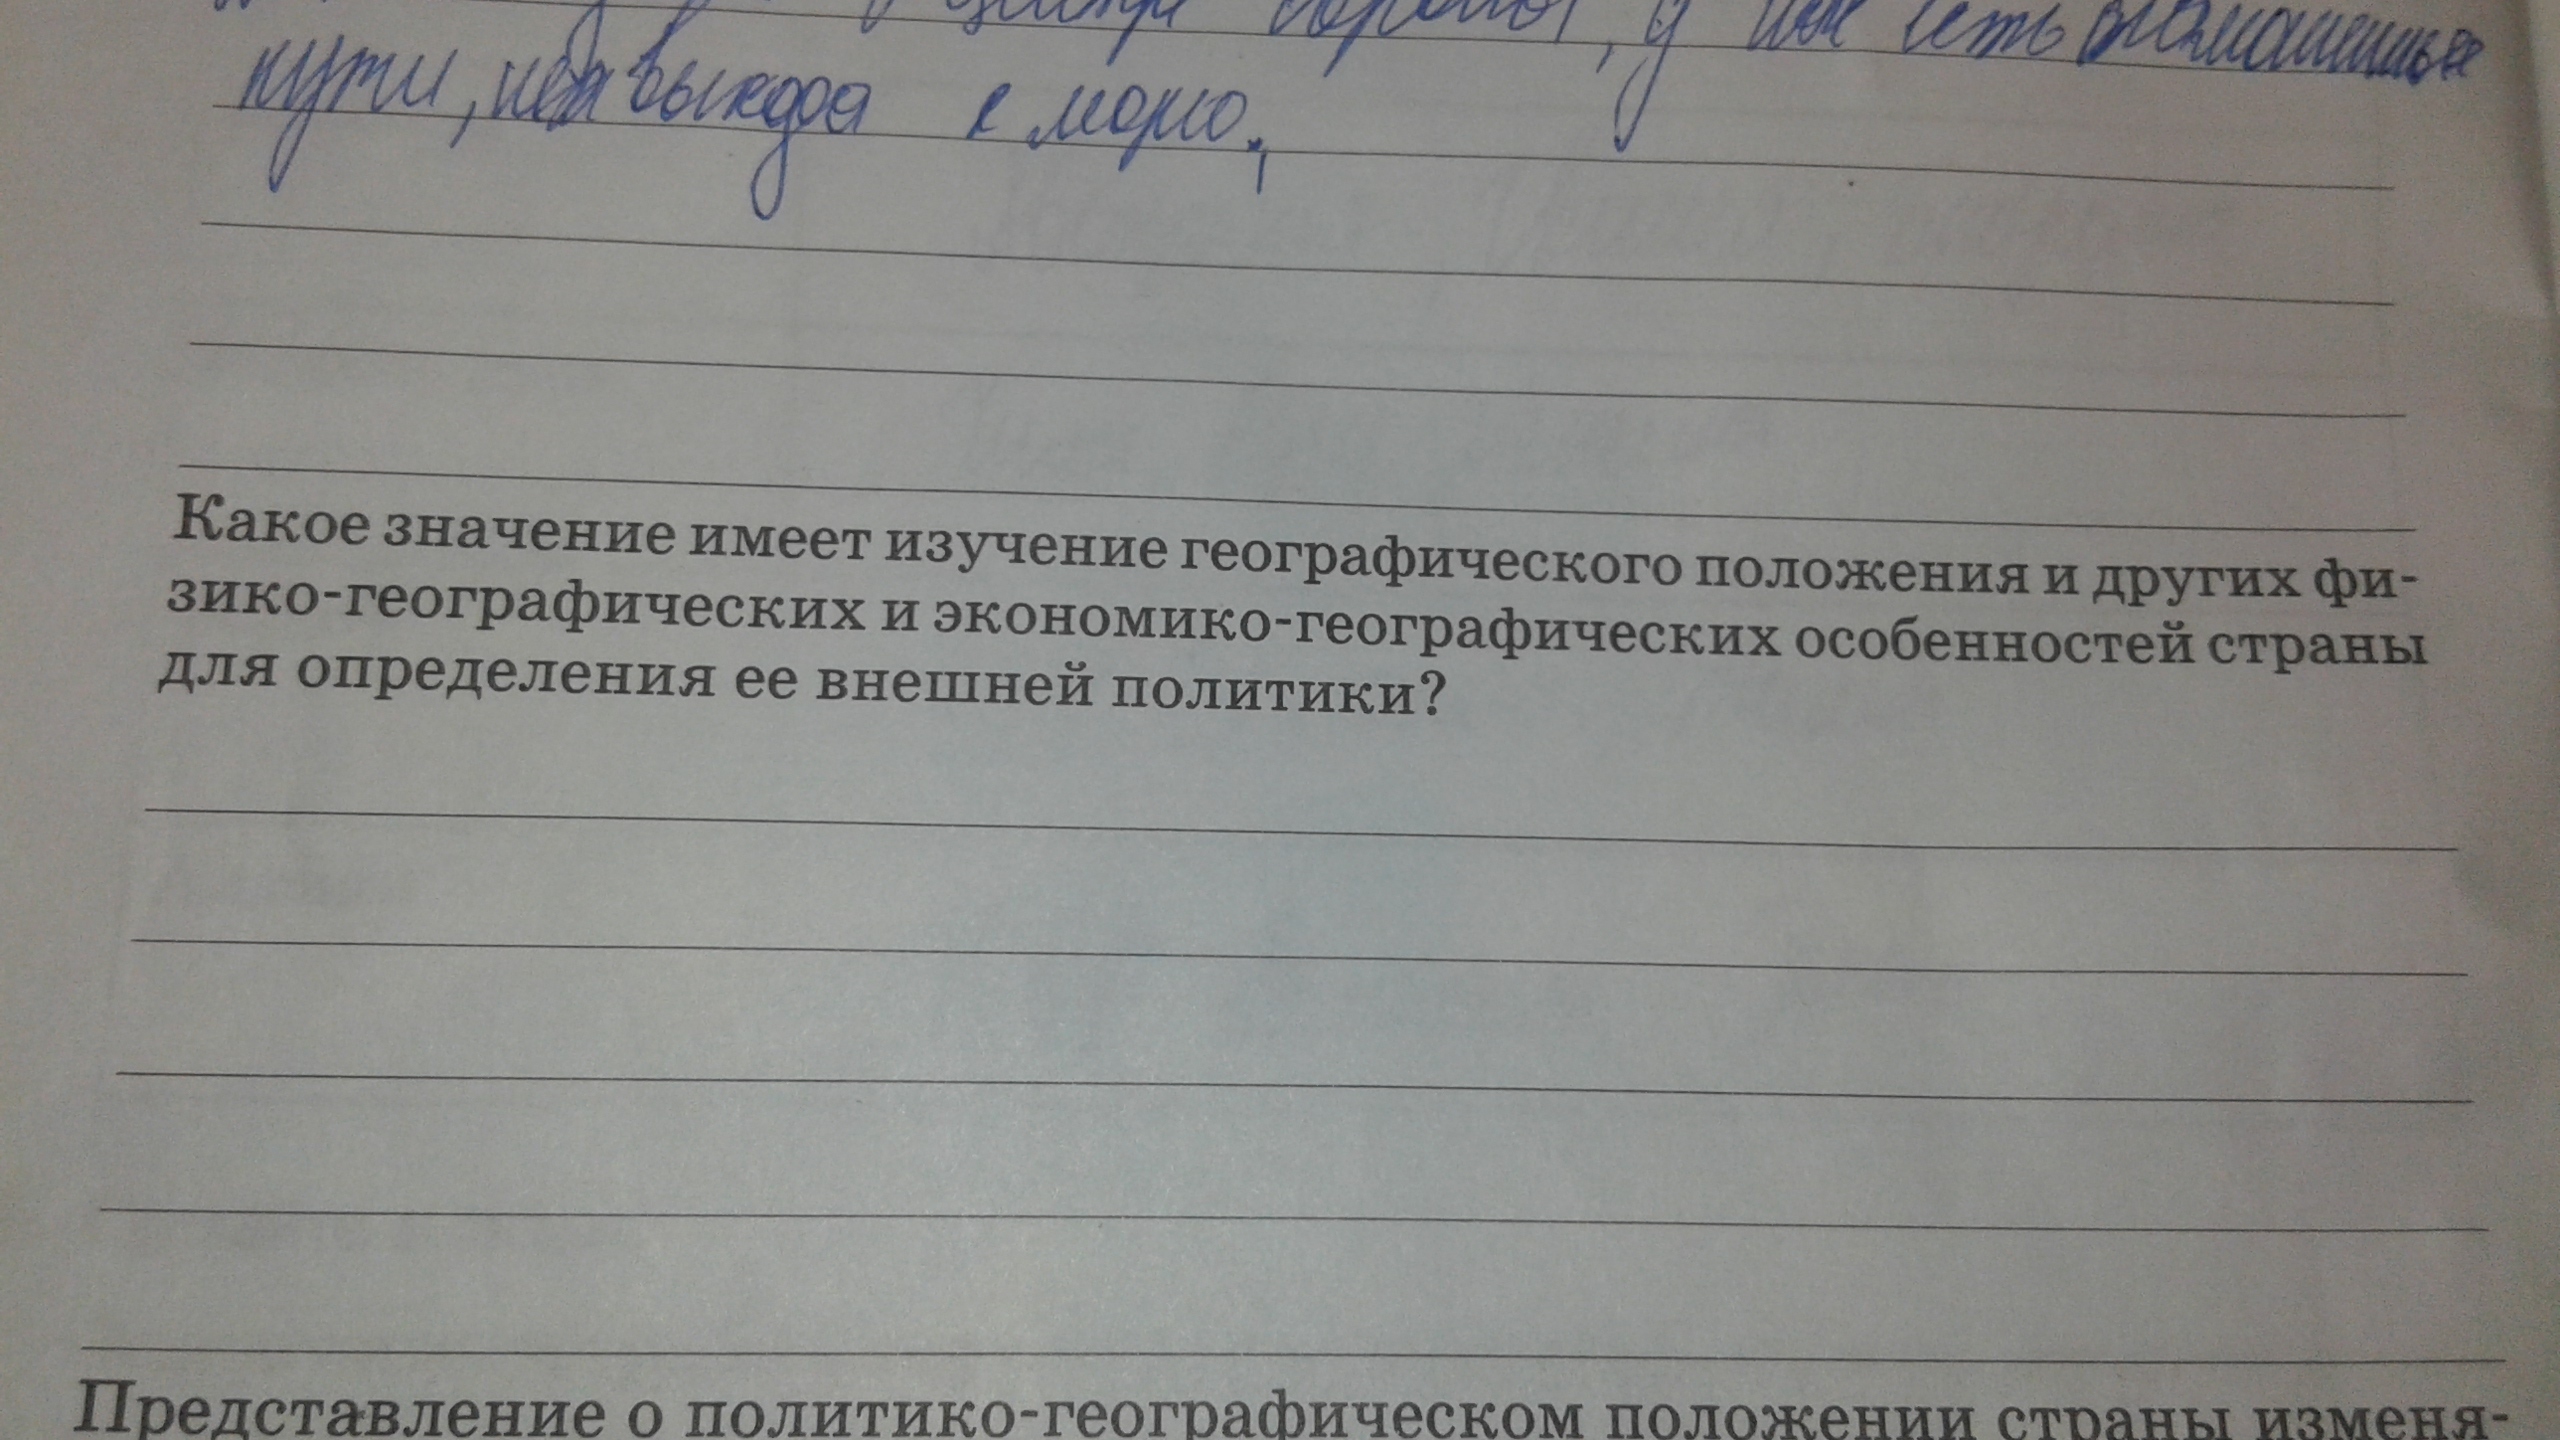 у них есть
пути, нет выхода к морю.
Какое значение имеет изучение географического положения и других фи-
зико-географических и экономико-географических особенностей страны
для определения ее внешней политики?
Представление о политико-географическом положении страны изменя-